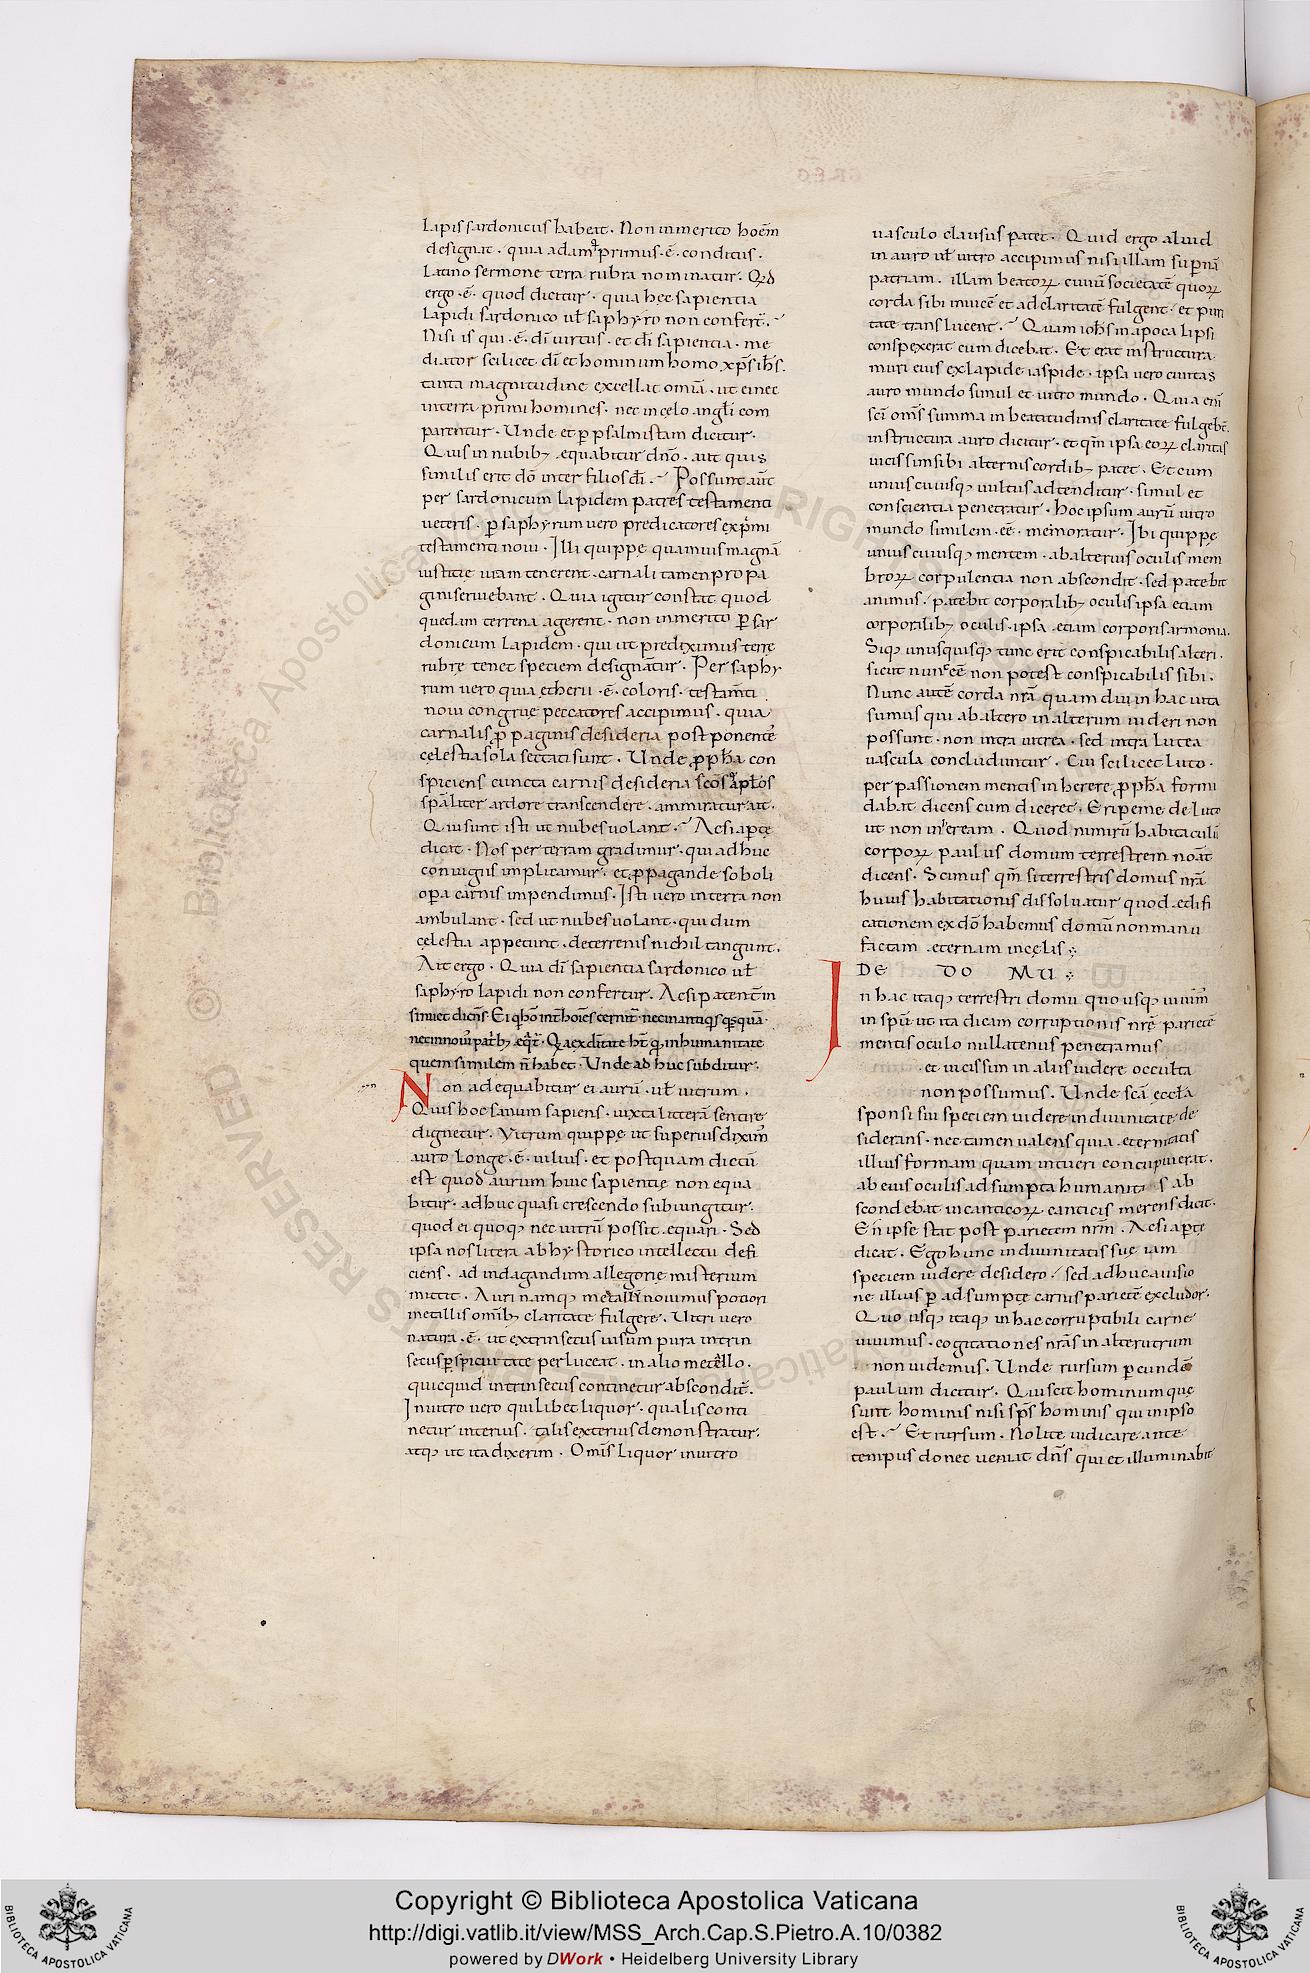 Lapis sardonicus habeat. Non inmerito hoēm
designat. quia adam qͥ primus .ē. conditus.
Latino sermone terra rubra nominatur. Qd
ergo .ē. quod dicitur. quia hec sapientia
Lapidi sardonico ul̄ saphyro non confert̄.
Nisi is qui .ē. dī uirtus. et dī sapientia. me
diator scilicet dī et hominum homo xp̄s ih̄s.
tanta magnitudine excellat omīa. ut ei nec
in terra primi homines. nec in celo angl̄i com
parentur. Unde et ꝑ psalmistam dicitur.
Quis in nubibꝫ equabitur dn̄o. aut quis
similis erit dō inter filios dī. Possunt aūt
per sardonicum lapidem patres testamenti
ueteris. ꝑ saphyrum uero predicatores exprimi
testamenti noui. Illi quippe quamuis magnā
iustitie uiam tenerent. carnali tamen propa
gini seruiebant. Quia igitur constat quod
quedam terrena agerent. non inmerito ꝑ sar
donicum lapidem. qui ut prediximus terre
rubrę tenet speciem designantur. Per saphy
rum uero quia ętherii .ē. coloris. testam̄ti
noui congrue peccatores accipimus. quia
carnalis ꝓpaginis desideria postponentes
cęlestia sola sectati sunt. Unde ꝓph̄a con
spiciens cuncta carnis desideria sc̄os apl̄os
spāliter ardore transcendere. ammiratur ait.
Qui sunt isti ut nubes uolant. Ac si aperte
dicat. Nos per terram gradimur. qui adhuc
coniugiis implicamur. et ꝓpagande soboli
opera carnis impendimus. Isti uero in terra non
ambulant. sed ut nubes uolant. qui dum
cęlestia appetunt. de terrenis nichil tangunt.
Ait ergo. Quia dī sapientia sardonico ul̄
saphyro lapidi non confertur. Ac si patent̄ in
nec in nouū patribꝫ
quem similem n̄ habet. Unde adhuc subditur.
Non adequabitur ei aurū. ul̄ uitrum.
Quis hoc sanum sapiens. iuxta litterā sentire
dignetur. Vitrum quippe ut superius dixim̄
auro longe .ē. uilius. et postquam dictū
est quod aurum huic sapientię non equa
bitur. adhuc quasi crescendo subiungitur.
quod ei quoqꝫ nec uitrū possit equari. Sed
ipsa nos litera ab hystorico intellectu defi
ciens. ad indagandum allegorię misterium
mittit. Auri namqꝫ metallū nouimus potiori
metallis omībꝫ claritate fulgere. Uitri uero
natura .ē. ut extrinsecus uisum pura intrin
secus ꝑspicuitate perluceat. in alio metallo.
quicquid intrinsecus continetur abscondit̄.
In uitro uero quilibet liquor. qualis conti
netur interius. talis exterius demonstratur.
atqꝫ ut ita dixerim. Omīs liquor in uitro
uasculo clausus patet. Quid ergo aliud
in auro ul̄ uitro accipimus nisi illam suꝑnā
patriam. illam beatoꝝ ciuiū societatē quoꝝ
corda sibi inuicē et ad claritatē fulgent. et puri
tate translucent. Quam ioh̄s in apocalipsi
conspexerat cum dicebat. Et erat instructura
muri eius ex lapide iaspide. ipsa uero ciuitas
auro mundo simul et uitro mundo. Quia enī
scī om̄s summa in beatitudinis claritate fulgeb̄t.
instructura auro dicitur. et qm̄ ipsa eoꝝ claritas
uicissim sibi alternis cordibꝫ patet. Et cum
unius cuiusqꝫ uultus adtenditur. simul et
conscientia penetratur. hoc ipsum aurū uitro
mundo similem .ēē. memoratur. Ibi quippe
unius cuiusqꝫ mentem. ab alterius oculis mem
broꝝ corpulentia non abscondit. sed patebit
animus. patebit corporalibꝫ oculis ipsa etiam
corporalibꝫ oculis. ipsa etiam corporis armonia.
Sicqꝫ unusquisqꝫ tunc erit conspicabilis alteri.
sicut nunc ēē non potest conspicabilis sibi.
Nunc autē corda nr̄a quam diu in hac uita
sumus qui ab altero in alterum uideri non
possunt. non intra uitrea. sed intra lutea
uascula concluduntur. Cui scilicet luto.
per passionem mentis inherere ꝓph̄a formi
dabat dicens cum diceret. Eripe me de luto
ut non inhęream. Quod nimirū habitaculū
corpoꝝ paulus domum terrestrem noāt
dicens. Scimus qm̄ si terrestris domus nr̄a
huius habitationis dissoluatur quod ędifi
cationem ex dō habemus domū non manu
factam. ęternam in cęlis
DE DOMU
In hac itaqꝫ terrestri domu quo usqꝫ uiuim̄
in spū. ut ita dicam corruptionis nr̄ę parietē
mentis oculo nullatenus penetramus
et uicissim in aliis uidere occulta
non possumus. Unde scā eccl̄a
sponsi sui speciem uidere in diuinitate de
siderans. nec tamen ualens quia eternitatis
illius formam quam intueri concupiuerat.
ab eius oculis adsumpta humanit s ab
scondebat in canticoꝝ canticis merens dicit.
En ipse stat post parietem nr̄m. Ac si aperte
dicat. Ego hunc in diuinitatis suę iam
speciem uidere desidero. sed adhuc a uisio
ne illius ꝑ adsumptę carnis parietē excludor.
Quo usqꝫ itaqꝫ in hac corruptibili carne
uiuimus. cogitationes nr̄as in alterutrum
non uidemus. Unde rursum ꝑ eundē
paulum dicitur. Qui scit hominum que
sunt hominis nisi sp̄s hominis qui in ipso
est. Et rursum. Nolite iudicare ante
tempus donec ueniat dn̄s qui et illuminabit
Copyright © Biblioteca Apostolica Vaticana
http://digi.vatlib.it/view/MSS_Arch.Cap.S.Pietro.A.10/0382
powered by DWork • Heidelberg University Library